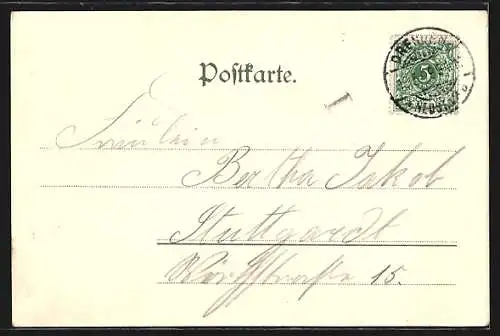 DRESDEN
5
NEUST.
Postkarte.
Fräulein
Bertha Jakob
Stuttgardt
15.